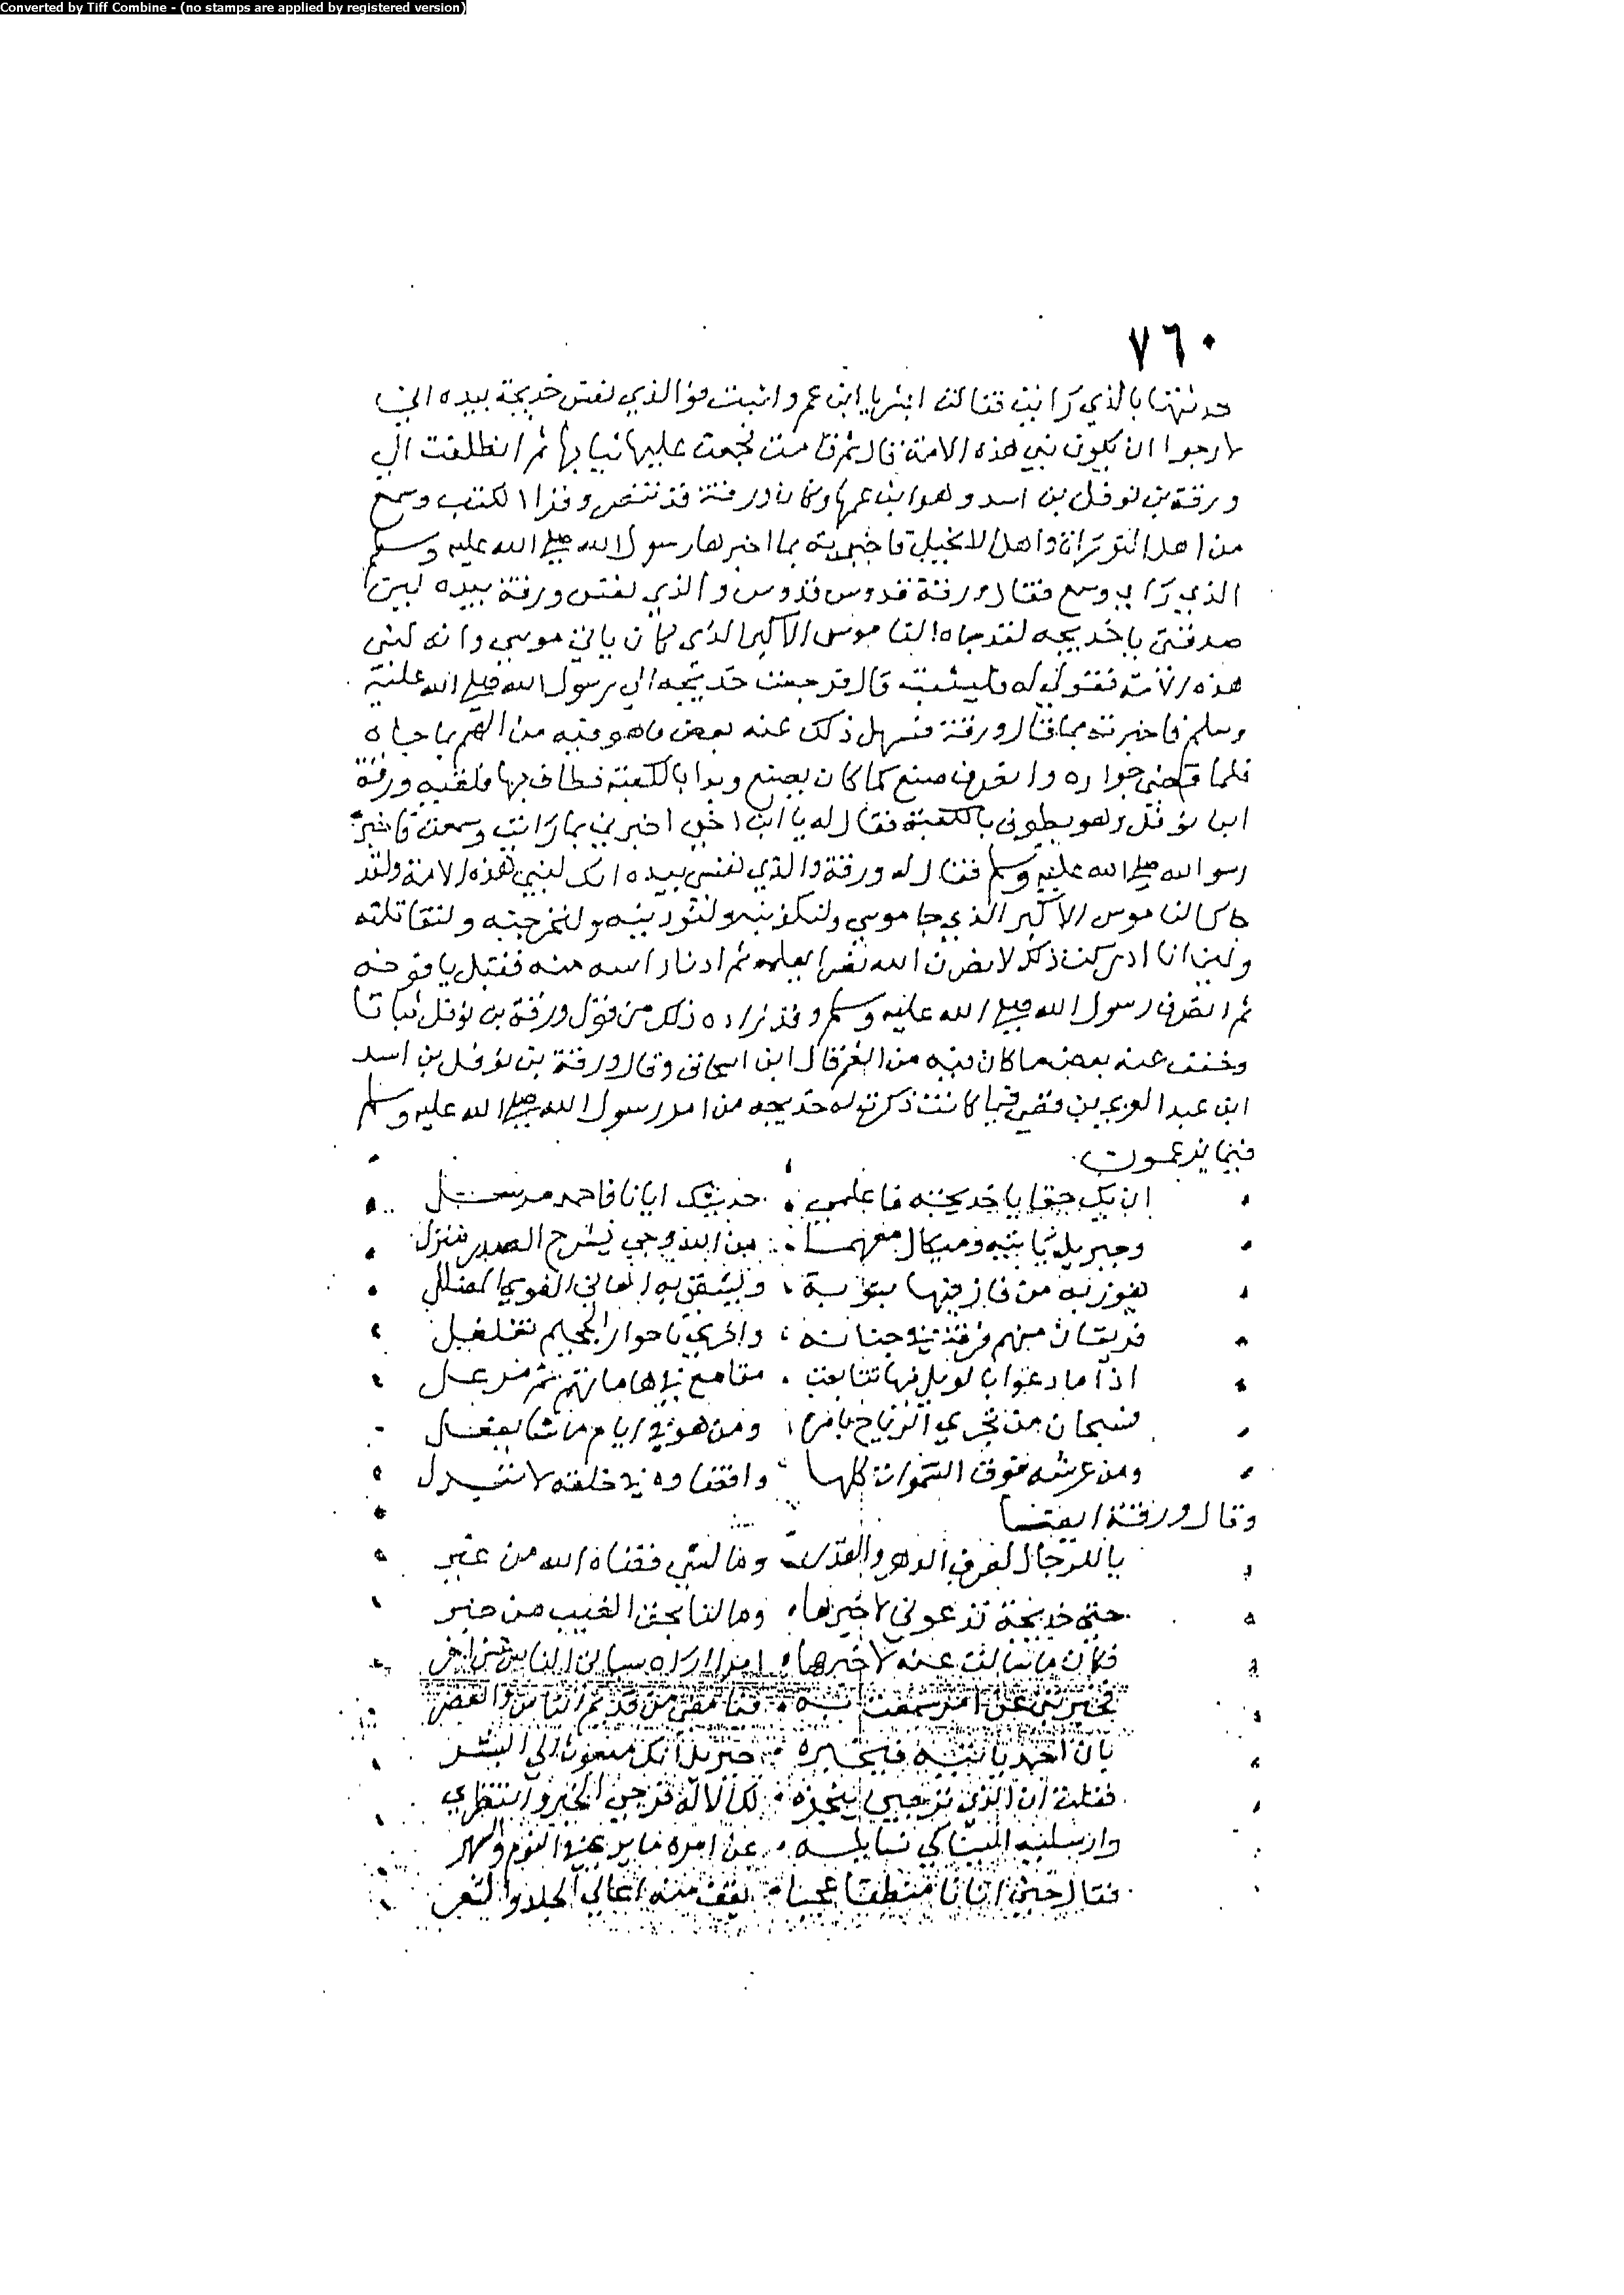 Converted by Tiff Combine - (no stamps are applied by registered version)
٧٦٠
حدثتها بالذي رايت فقالت ابشر يا ابن عم واثبت فوالذي نفس خديجة بيده اني
لارجوا ان يكون نبي هذه الامة قال ثم قامت فجمعت عليها ثيابها ثم انطلقت الي
ورقة بن نوفل بن اسد وهو ابن عمها وكان ورقة قد تنصر وقرا الكتب وسمع
من اهل التوراة واهل الانجيل فاخبرته بما اخبرها رسول الله صلي الله عليه وسلم
الذي راي وسمع فقال ورقة قدوس قدوس والذي نفس ورقة بيده لين
صدقتي يا خديجه لقد جاه الناموس الاكبر الذي كان ياتي موسي وانه لنبي
هذه الامة فقولي له فليثبت قال فرجعت خديجه الي رسول الله صلي الله عليه
وسلم فاخبرته بما قال ورقة فسهل ذلك عنه بعض ما هو فيه من الهم بما جاه
فلما قضي جواره وانصرف صنع كما كان يصنع وبدا بالكعبة فطاف بها فلقيه ورقة
ابن نوفل وهو يطوف بالكعبة فقال له يا ابن اخي اخبرني بما رايت وسمعت فاخبره
رسول الله صلي الله عليه وسلم فقال له ورقة والذي نفسي بيده انك لنبي هذه الامة ولقد
جاك الناموس الاكبر الذي جا موسي ولتكذبنه ولتوذينه ولتخرجنه ولتقاتلنه
ولين انا ادركت ذلك لانصرن الله نصرا يعلمه ثم ادنا راسه منه فقبل يافوخه
ثم انصرف رسول الله صلي الله عليه وسلم وقد زاده ذلك من قول ورقة بن نوفل ثباتا
وخفف عنه بعض ما كان فيه من الغم قال ابن اسحاق وقال ورقة بن نوفل بن اسد
ابن عبد العزي بن قصي فيما كانت ذكرت له خديجه من امر رسول الله صلي الله عليه وسلم
فيما يزعمون
ان يك حقا يا خديجة فاعلمي حديثك ايانا فاحمد مرسل
وجبريل ياتيه وميكال معهما من الله وحي يشرح الصدر منزل
يفوز به من فاز فيها بتوبة ويشقي به العاني الغوي المضلل
فريقان منهم فرقة في جنانه واخري باحوار الجحيم تغلغل
اذا ما دعوا بالويل فيها تتابعت مقامع في هاماتهم ثم مزعل
فسبحان من تجري الرياح بامره ومن هو في الايام ما شا يفعل
ومن عرشه فوق السموات كلها واقضاوه في خلقه لا تبدل
وقال ورقة ايضا
يا للرجال لصرف الدهر والقدر وما لشي قضاه الله من غير
حتي خديجة تدعوني لاخبرها وما لنا بخفي الغيب من خبر
فكان ما سالت عنه لاخبرها امرا اراه سياتي الناس من اخر
فخبرتني عن امر سمعت به فيما مضي من قديم الناس والعصر
بان احمد ياتيه فيخبره جبريل انك مبعوث الي البشر
فقلت ان الذي ترجين ينجزه لك الاله فرجي الخير وانتظري
وارسليه الينا كي نسايله عن امره ما يري في النوم والسهر
فقال حين اتانا منطقا عجبا يقف منه اعالي الجلد والشعر